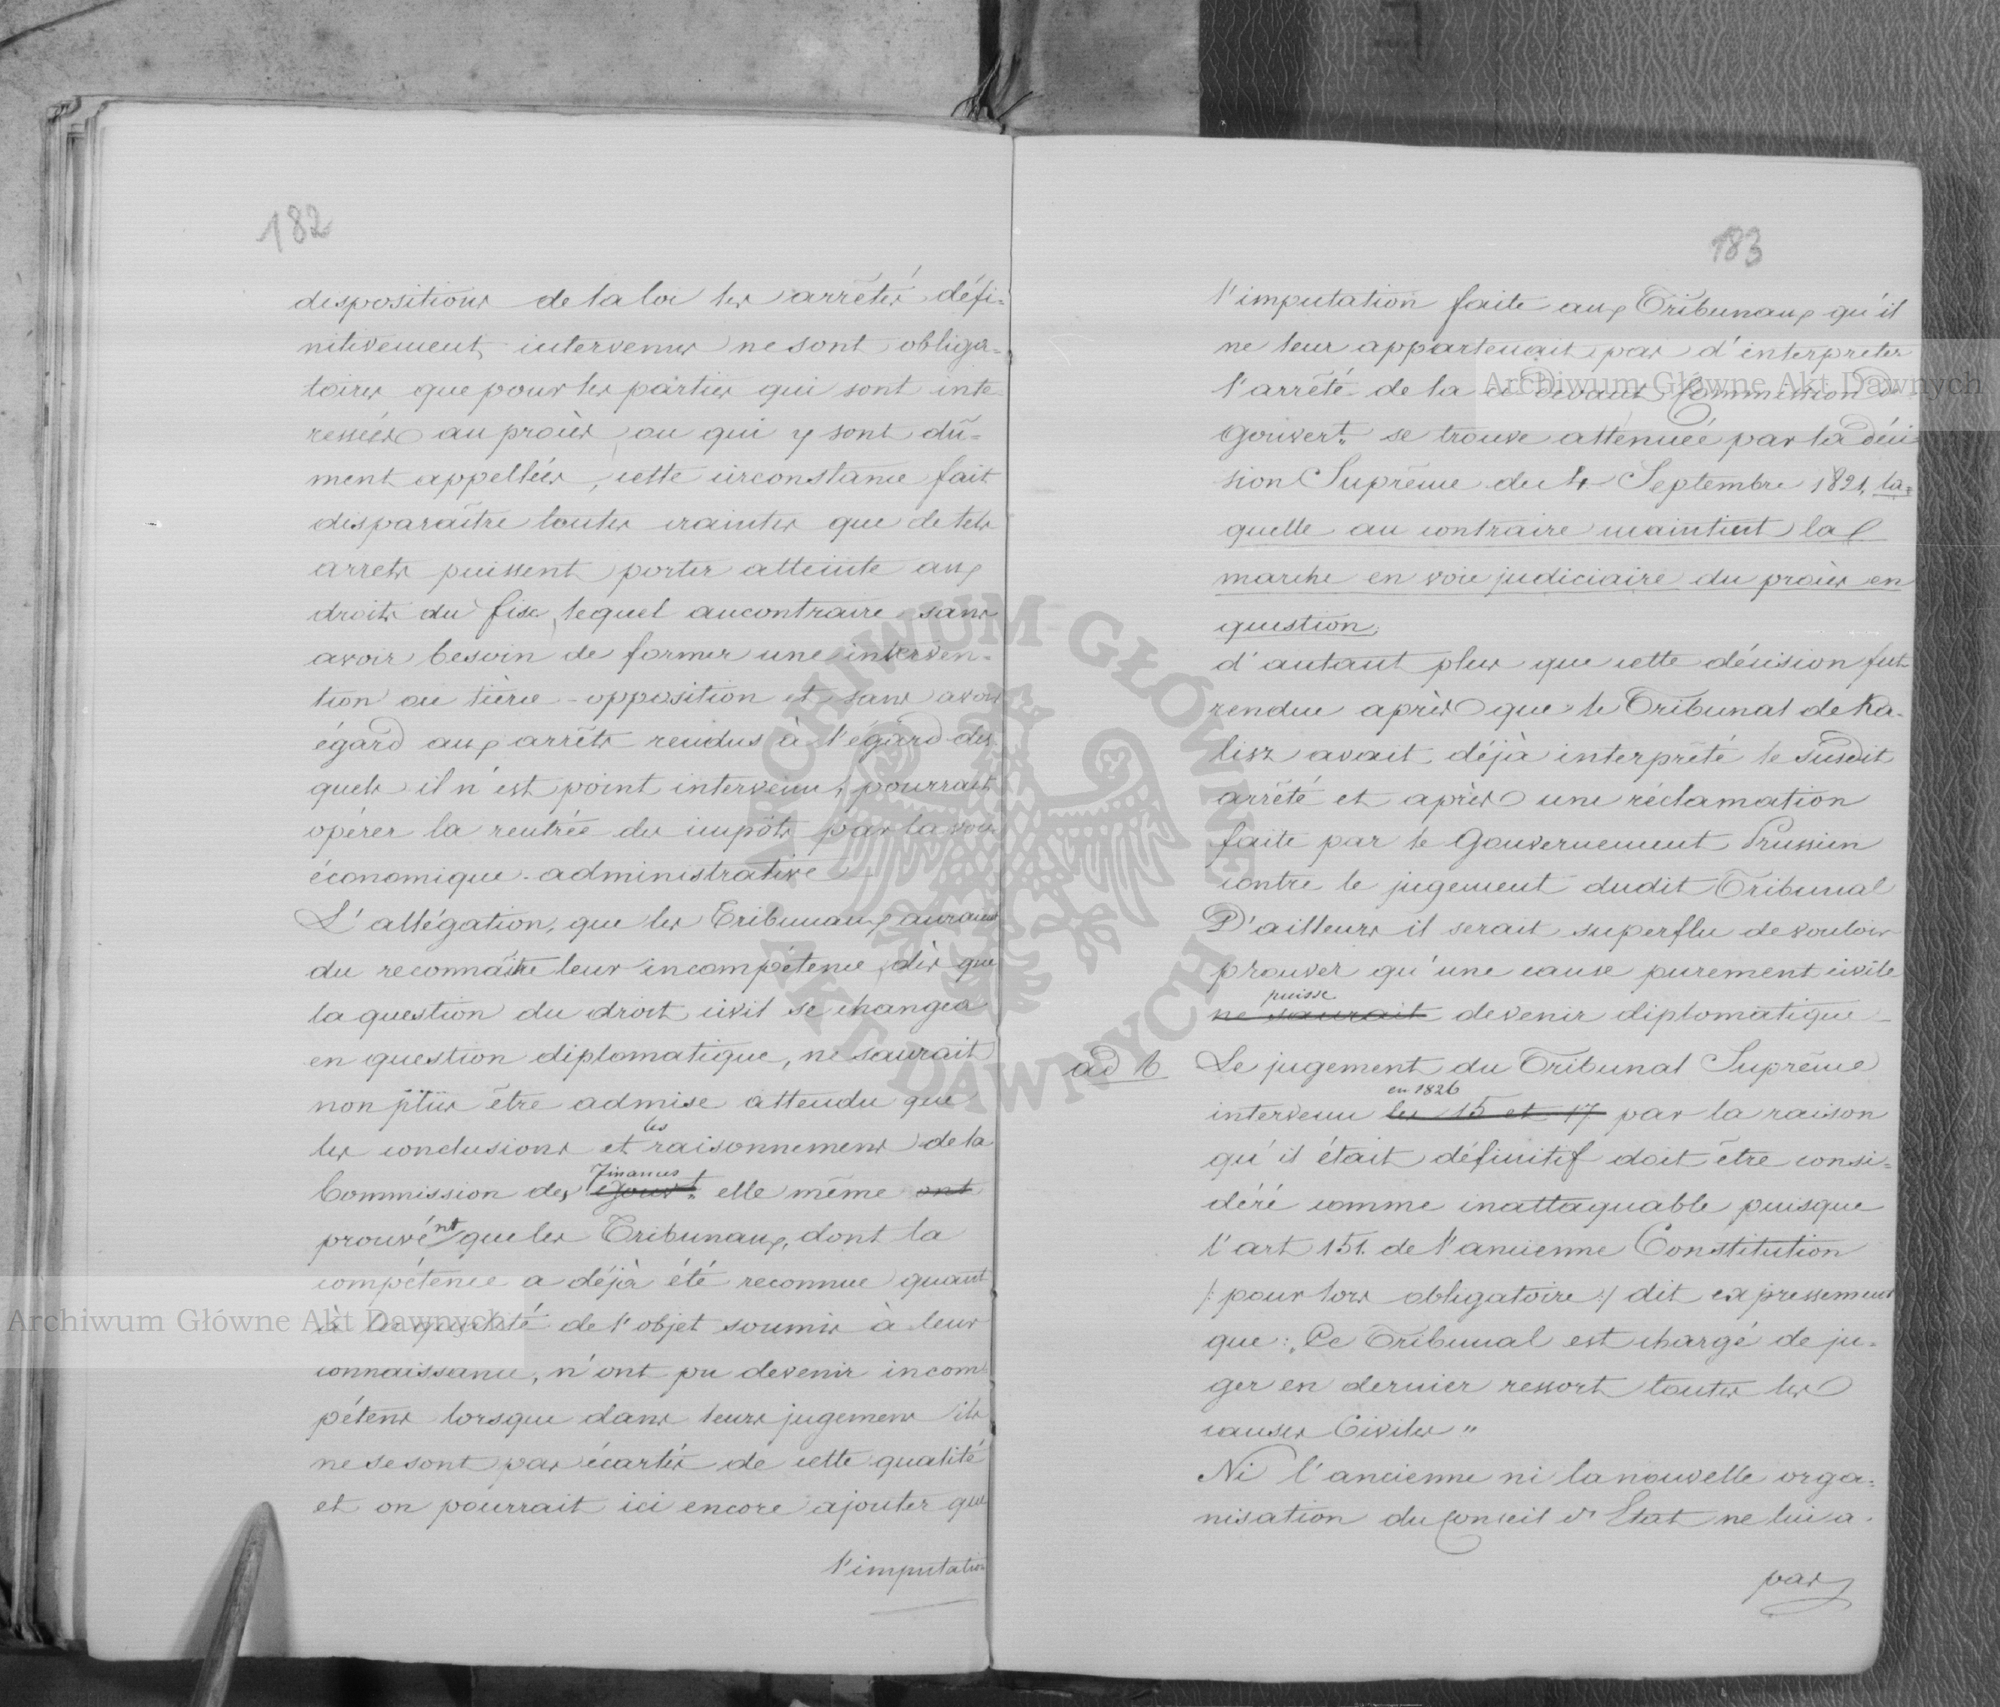 182
dispositions de la loi les arrêtés défi-
nitivement intervenus ne sont obliga-
toires que pour les parties qui sont inte-
ressées au procès ou qui y sont dû-
ment appellées, cette circonstance fait
disparaître toutes craintes que de tels
arrets puissent porter atteinte aux
droits du fisc, lequel aucontraire sans
avoir besoin de former une interven-
tion ou tièrce-opposition et sans avoir
égard aux arrêts rendus à l'égard des
quels il n'est point intervenu, pourrait
opérer la rentrée des impôts par la voie
économique-administrative
L'allégation, que les Tribunaux auraient
du reconnaître leur incompétence dès que
la question du droit civil se changea
en question diplomatique, ne saurait
non plus être admise attendu que
les conclusions et les raisonnemens de la
Commission des Finances Gouvert. elle même ont
prouvént que les Tribunaux, dont la
compétence a déjà été reconnue quant
à la qualité de l'objet soumis à leur
connaissance, n'ont pu devenir incom-
pétens lorsque dans leurs jugemens ils
ne se sont pas écartés de cette qualité
et on pourrait ici encore ajouter que
l'imputation
183
l'imputation faite aux Tribunaux qu'il
ne leur appartenait pas d'interpreter
l'arrêté de la ci devant Commission de
Gouvert. se trouve attenuée par la déci-
sion Suprême du 4 Septembre 1821, la-
quelle au contraire maintient la
marche en voie judiciaire du procès en
question;
d'autant plus que cette décision fut
rendue après que le Tribunal de Ka-
lisz avait déjà interprêté le susdit
arrêté et après une réclamation
faite par le Gouvernement Prussien
contre le jugement dudit Tribunal
D'ailleurs il serait superflu de vouloir
prouver qu'une cause purement civile
puisse
ne saurait devenir diplomatique
ad b Le jugement du Tribunal Suprême
en 1826
intervenu les 15 et 17 par la raison
qu'il était définitif doit être consi-
déré comme inattaquable puisque
l'art 151. de l'ancienne Constitution
/: pour lors obligatoire :/ dit expressement
que: "Ce Tribunal est chargé de ju-
ger en dernier ressort toutes les
causes Civiles"
Ni l'ancienne ni la nouvelle orga-
nisation du Conseil d'Etat ne lui a
pas
Archiwum Główne Akt Dawnych
Archiwum Główne Akt Dawnych
ARCHIWUM GŁÓWNE AKT DAWNYCH